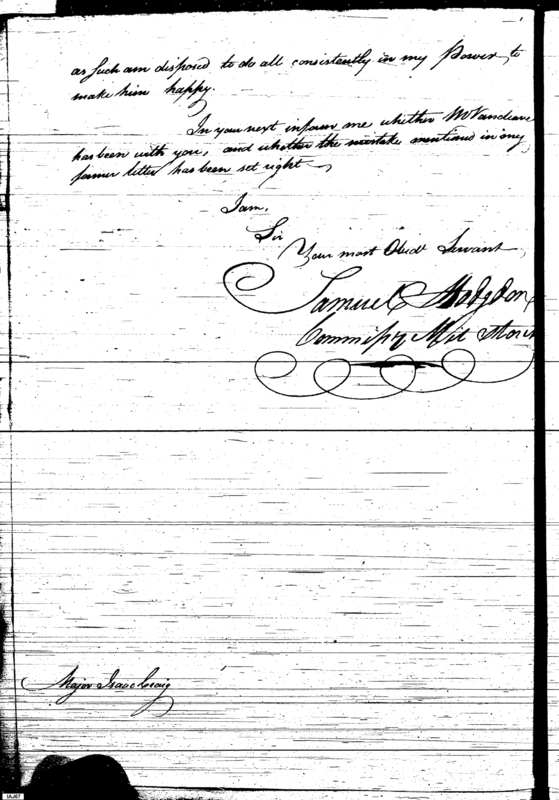 as such am disposed to do all consistently in my Power to
make him happy.
In your next inform me whether Mr Vancleave
has been with you, and whether the mistake mentioned in my
former letter has been set right
I am,
Sir
Your most Obedt Servant
Samuel Hodgdon
Commissy Mil Stores
Major Isaac Craig
IAJ67